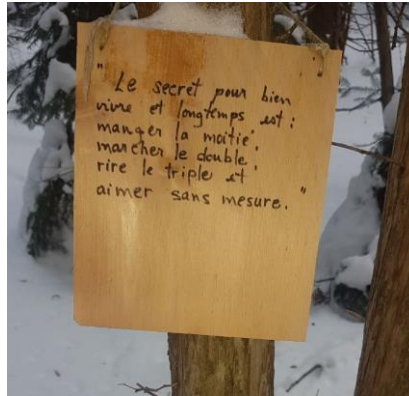 " Le secret pour bien
vivre et longtemps est :
manger la moitié.
marcher le double.
rire le triple et
aimer sans mesure. "